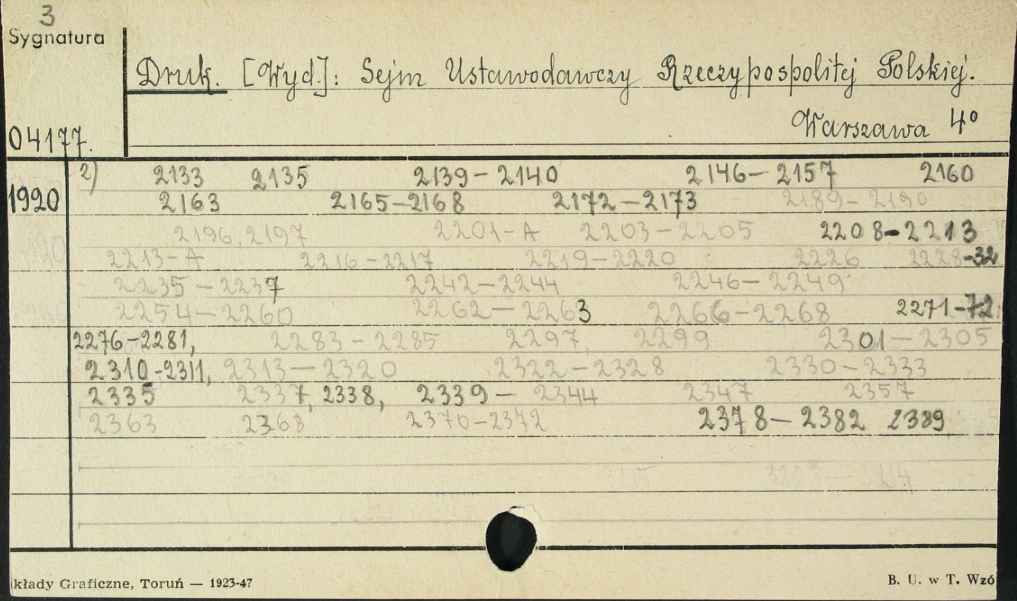 3
Sygnatura
Druk. [Wyd.]: Sejm Ustawodawczy Rzeczypospolitej Polskiej.
Warszawa 4°
04177.
1920 2) 2133 2135 2139-2140 2146-2157 2160
2163 2165-2168 2172-2173 2189-2190
2196, 2197 2201-A 2203-2205 2208-2213
2213-A 2216-2217 2219-2220 2226 2228-32
2235-2237 2242-2244 2246-2249
2254-2260 2262-2263 2266-2268 2271-72
2276-2281, 2283-2285 2297, 2299 2301-2305
2310-2311, 2313-2320 2322-2328 2330-2333
2335 2337, 2338, 2339- 2344 2347 2357
2363 2363 2370-2372 2378-2382 2389
kłady Graficzne, Toruń — 1923-47
B. U. w T. Wzó